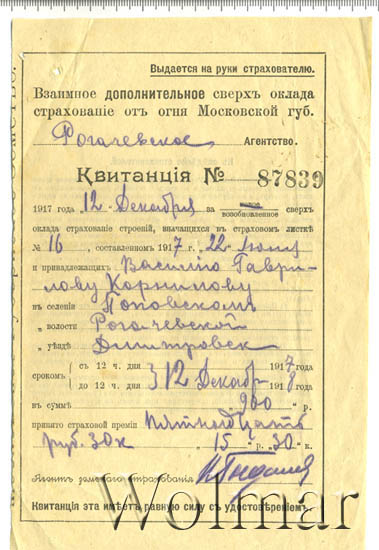 Выдается на руки страхователю.
Взаимное дополнительное сверхъ оклада
страхованіе отъ огня Московской губ.
Рогачевское Агентство.
Квитанція № 87839
1917 года 12 Декабря за возобновленное сверхъ
оклада страхованіе строеній, значащихся въ страховомъ листкѣ
№ 16, составленномъ 1917 г. 22 Іюня
и принадлежащихъ Василію Гаври-
лову Корнилову
въ селеніи Поповскомъ
„ волости Рогачевской
„ уѣздѣ Дмитровск
срокомъ съ 12 ч. дня 1917 года
до 12 ч. дня 12 Декабр 1918 года
въ суммѣ 900 „ р.
принято страховой преміи пятнадцать
руб. 30 к „ 15 р. 30 к.
Агентъ земскаго страхованія
Квитанція эта имѣетъ равную силу съ удостовѣреніемъ.
Wolmar